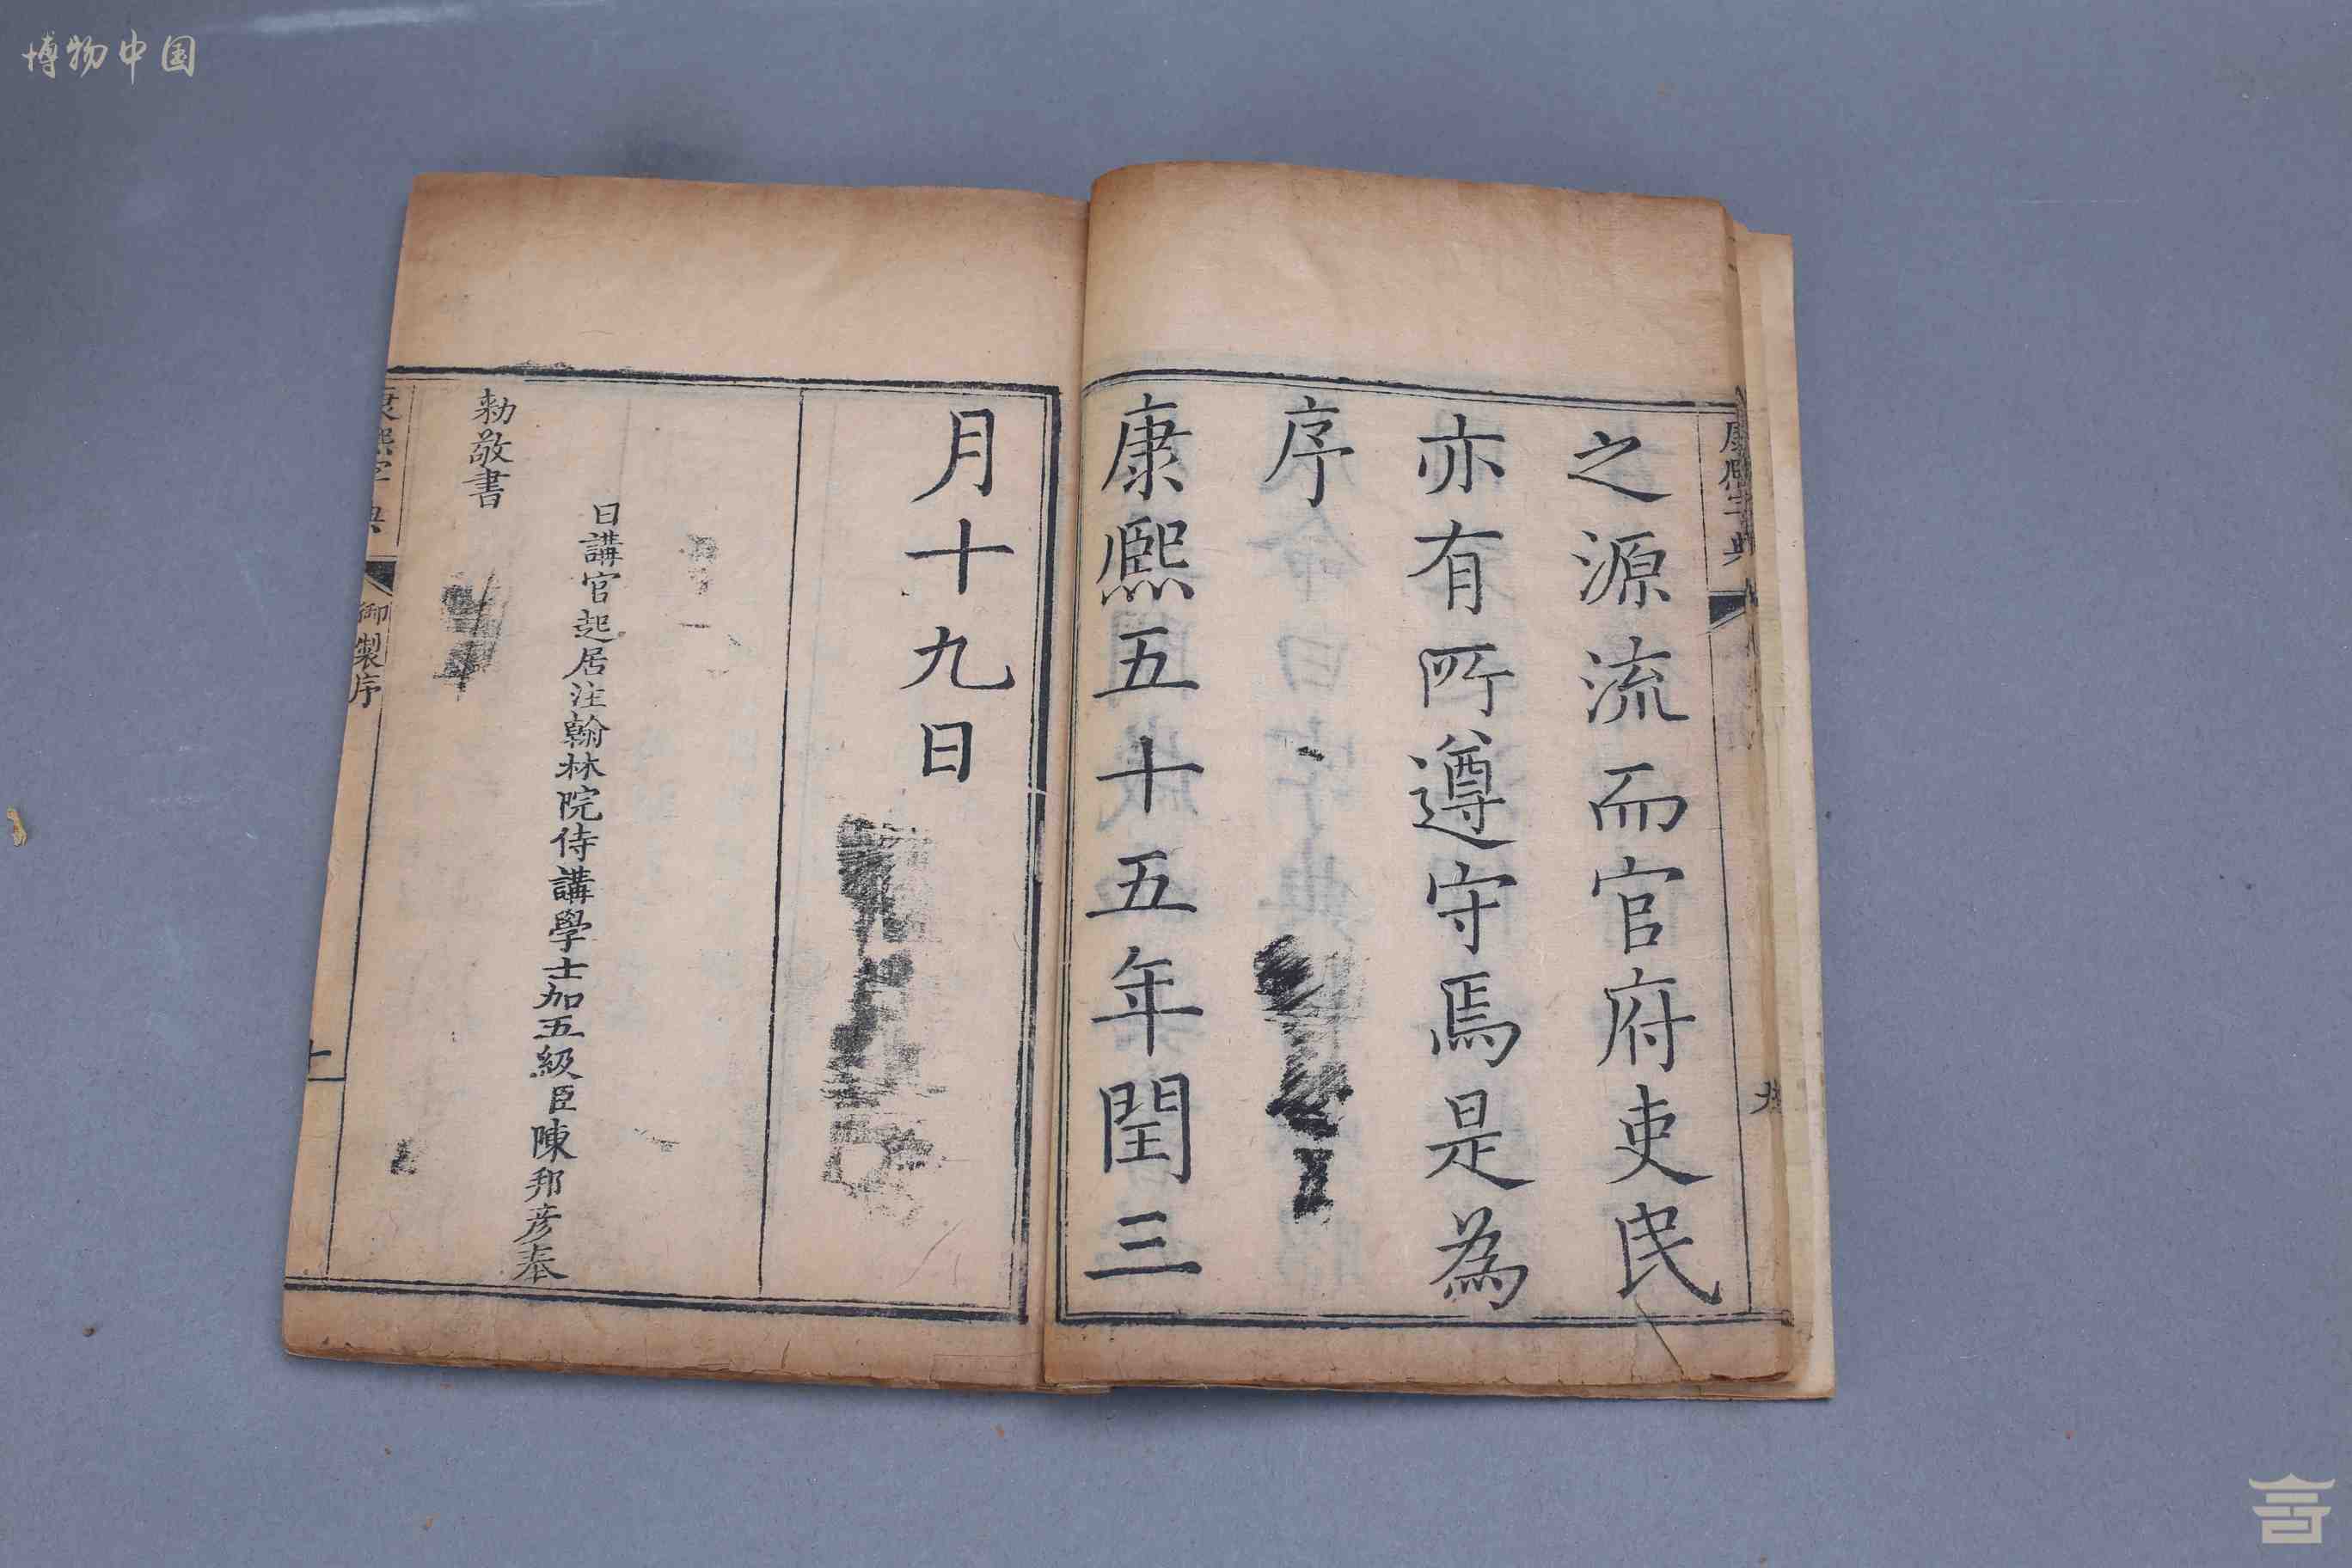 博物中国
康熙字典
九
之源流而官府吏民
亦有所遵守焉是為
序
康熙五十五年閏三
月十九日
日講官起居注翰林院侍講學士加五級臣陳邦彦奉
勅敬書
康熙字典
御製序
十